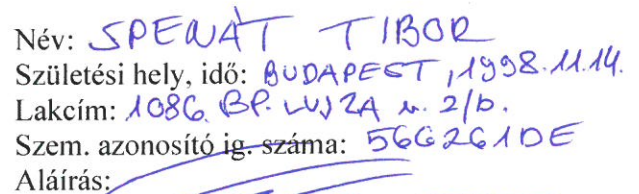 Név: SPENÁT TIBOR
Születési hely, idő: BUDAPEST, 1998.11.14.
Lakcím: 1086. BP. LUJZA u. 2/b.
Szem. azonosító ig. száma: 566261DE
Aláírás: